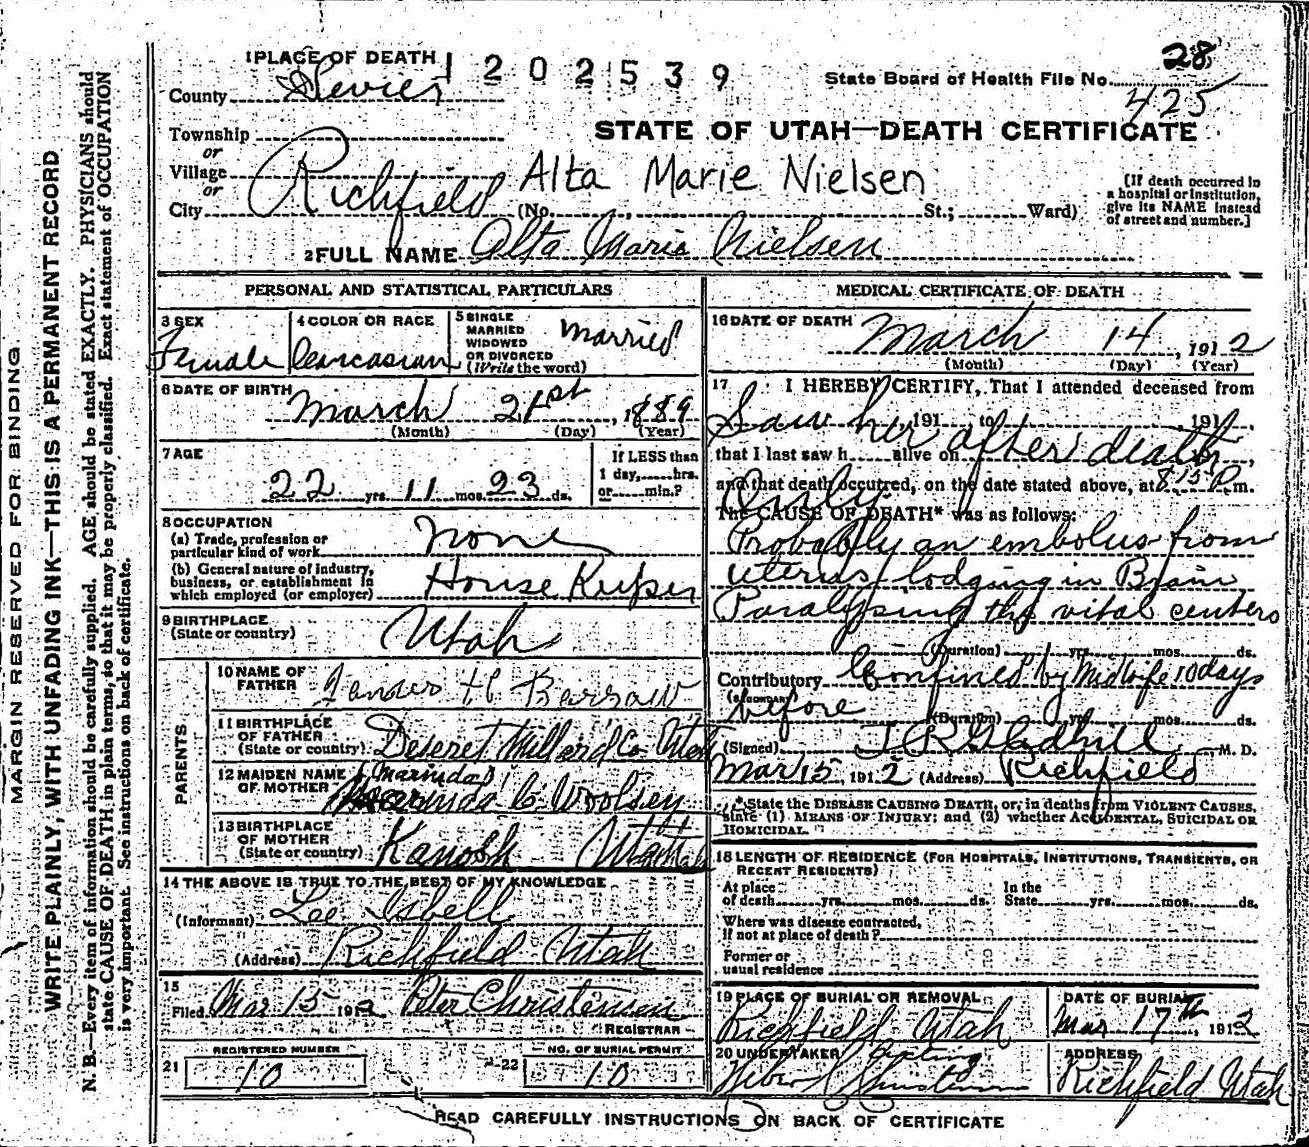 1 PLACE OF DEATH 1 2 0 2 5 3 9
State Board of Health File No. 28
425
County Sevier
STATE OF UTAH—DEATH CERTIFICATE
Township
or
Village
or
City Richfield
Alta Marie Nielsen
(No. , St.; Ward)
[If death occurred in
a hospital or institution,
give its NAME instead
of street and number.]
2 FULL NAME Alta Marie Nielsen
PERSONAL AND STATISTICAL PARTICULARS
3 SEX
Female
4 COLOR OR RACE
Caucasian
5 SINGLE
MARRIED
WIDOWED
OR DIVORCED
(Write the word)
Married
6 DATE OF BIRTH
March 21st, 1889
(Month) (Day) (Year)
7 AGE
22 yrs. 11 mos. 23 ds.
If LESS than
1 day, hrs.
or min.?
8 OCCUPATION
(a) Trade, profession or
particular kind of work
None
(b) General nature of industry,
business, or establishment in
which employed (or employer)
House Keeper
9 BIRTHPLACE
(State or country)
Utah
PARENTS
10 NAME OF
FATHER
H C Barrow
11 BIRTHPLACE
OF FATHER
(State or country)
Deseret Millard Co. Utah
12 MAIDEN NAME
OF MOTHER
Marinda
C Woolsey
13 BIRTHPLACE
OF MOTHER
(State or country)
Kanosh Utah
14 THE ABOVE IS TRUE TO THE BEST OF MY KNOWLEDGE
(Informant) Lee Isbell
(Address) Richfield Utah
15
Filed Mar 15 1912 Peter Christensen
REGISTRAR
21
REGISTERED NUMBER
10
22
NO. OF BURIAL PERMIT
10
MEDICAL CERTIFICATE OF DEATH
16 DATE OF DEATH
March 14, 1912
(Month) (Day) (Year)
17 I HEREBY CERTIFY, That I attended deceased from
191 , to 191 ,
Saw her after death
that I last saw h alive on
and that death occurred, on the date stated above, at 8 15 P m.
Only.
The CAUSE OF DEATH* was as follows:
Probably an embolus from
uterus lodging in Brain
Paralysing the vital centers
(Duration) yrs. mos. ds.
Contributory Confined by Midwife 10 days
(SECONDARY)
before
(Duration) yrs. mos. ds.
(Signed) J. R. Gledhill M. D.
Mar 15, 1912 (Address) Richfield
*State the DISEASE CAUSING DEATH, or, in deaths from VIOLENT CAUSES,
state (1) MEANS OF INJURY; and (2) whether ACCIDENTAL, SUICIDAL OR
HOMICIDAL.
18 LENGTH OF RESIDENCE (FOR HOSPITALS, INSTITUTIONS, TRANSIENTS, OR
RECENT RESIDENTS)
At place
of death yrs. mos. ds.
In the
State yrs. mos. ds.
Where was disease contracted,
if not at place of death?
Former or
usual residence
19 PLACE OF BURIAL OR REMOVAL
Richfield Utah
DATE OF BURIAL
Mar 17th, 1912
20 UNDERTAKER
Heber C Christensen
ADDRESS
Richfield Utah
READ CAREFULLY INSTRUCTIONS ON BACK OF CERTIFICATE
MARGIN RESERVED FOR BINDING
WRITE PLAINLY, WITH UNFADING INK—THIS IS A PERMANENT RECORD
N. B.—Every item of information should be carefully supplied. AGE should be stated EXACTLY. PHYSICIANS should
state CAUSE OF DEATH in plain terms, so that it may be properly classified. Exact statement of OCCUPATION
is very important. See instructions on back of certificate.